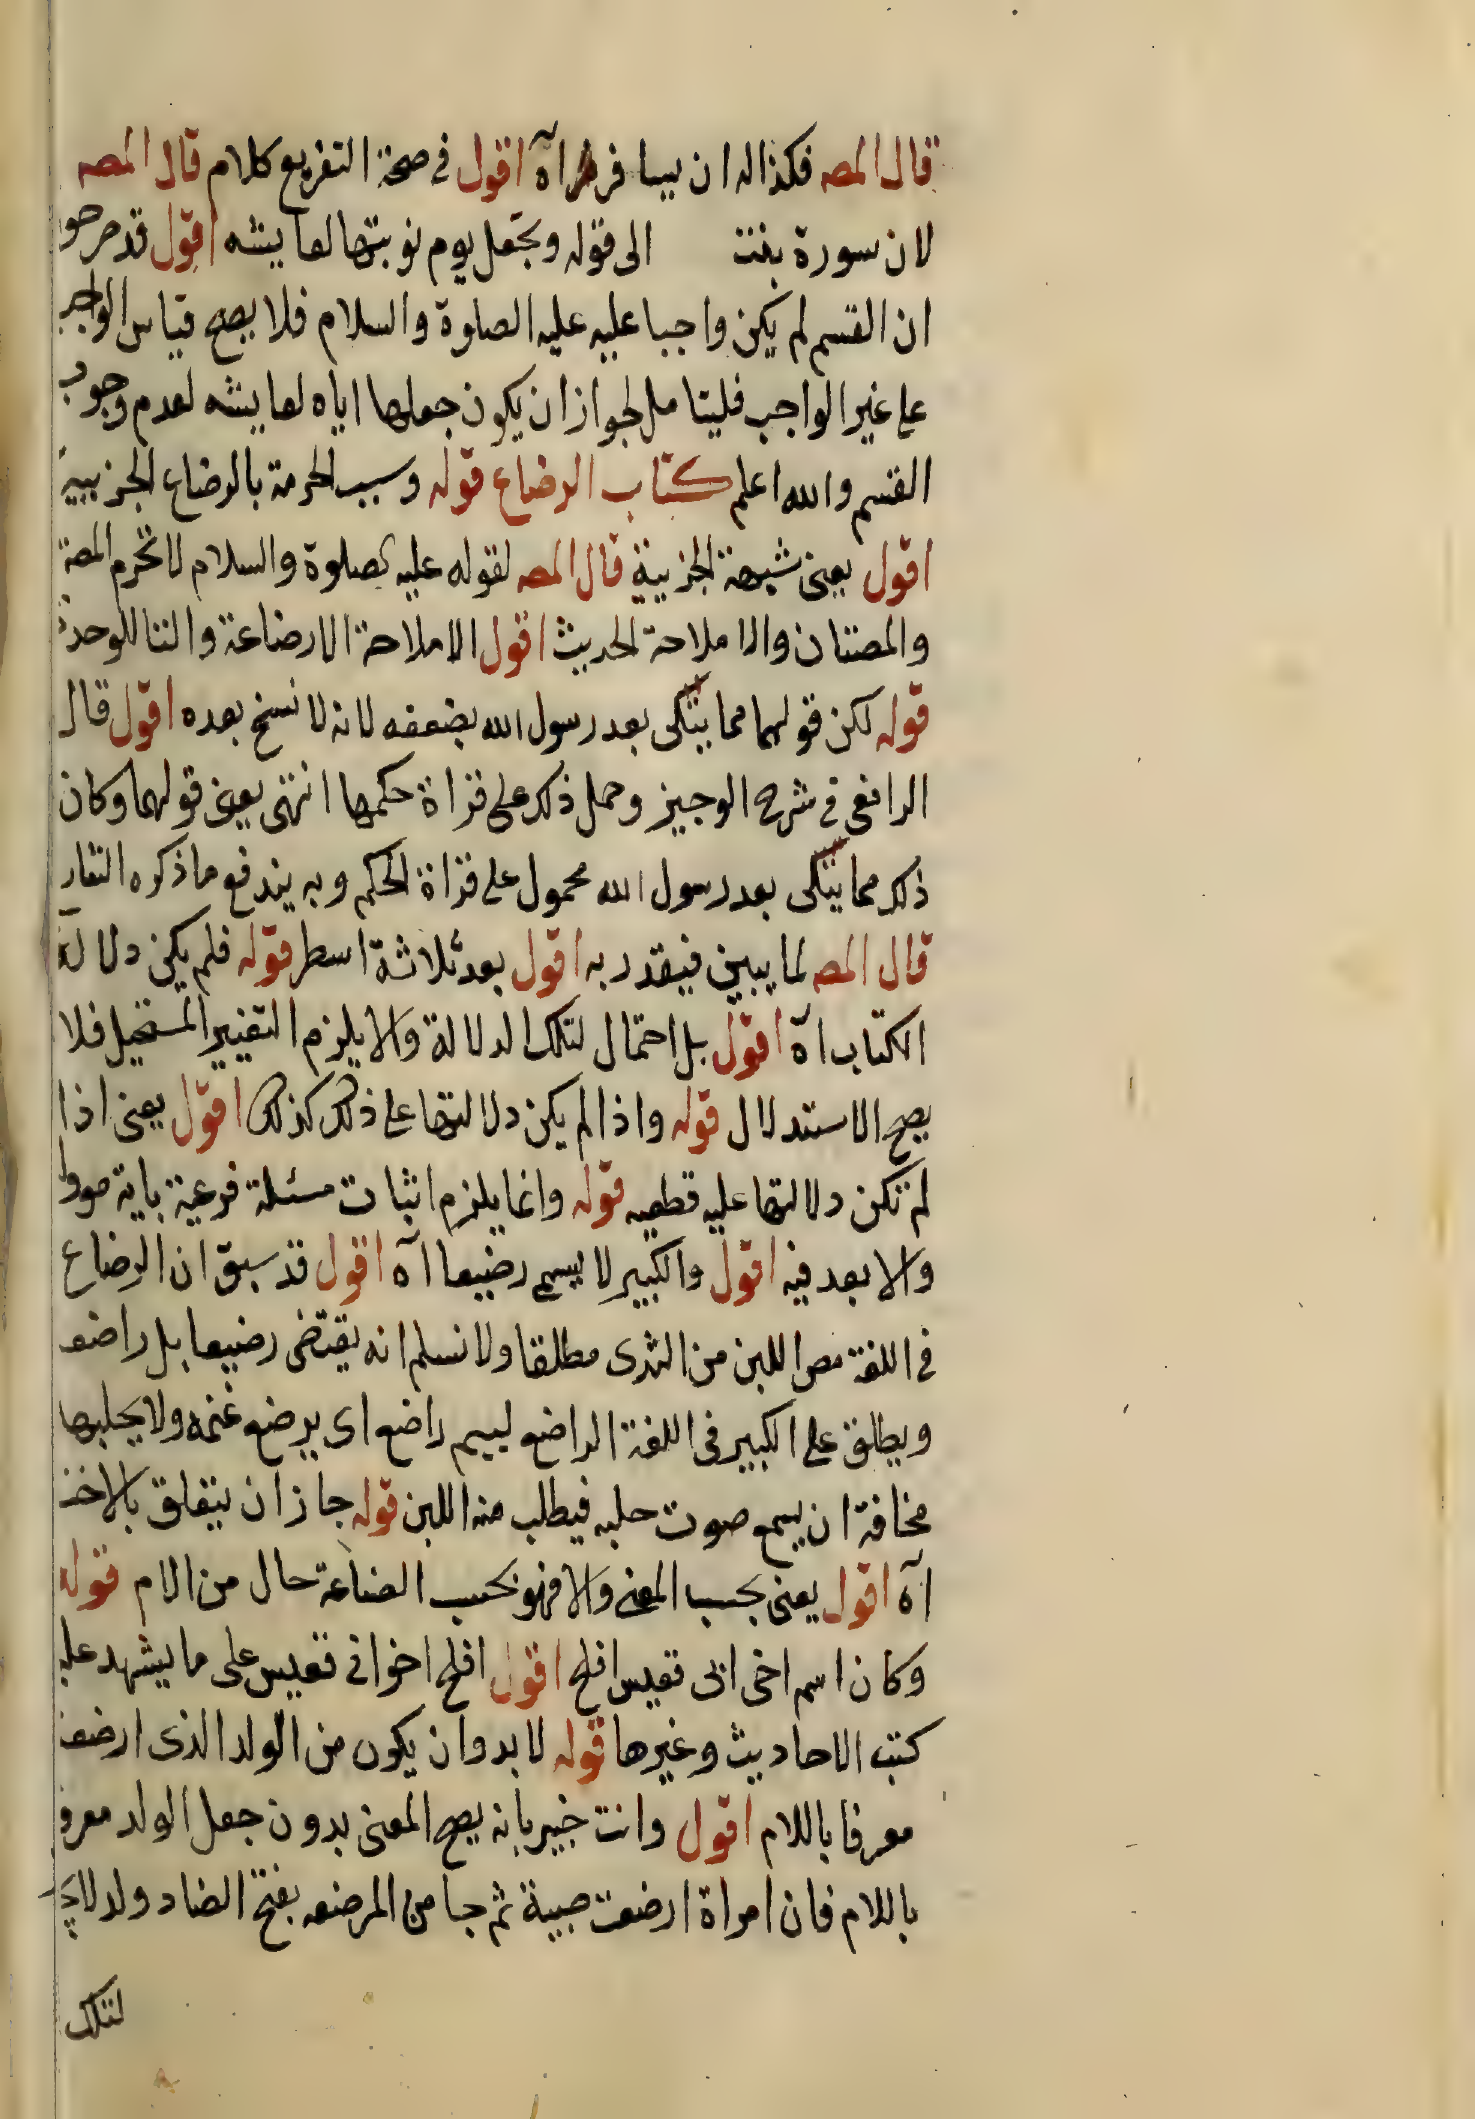 قال المصه فكذا له ان يسافر اه اقول فى صحة التفريع كلام قال المصه
لان سورة بنت الى قوله وتجعل يوم نوبتها لعايشه اقول قد صرحو
ان القسم لم يكن واجبا عليه عليه الصلوة والسلام فلا يصح قياس الواجب
على غير الواجب فليتامل لجواز ان يكون جعلها اياه لعايشه لعدم وجوب
القسم والله اعلم كتاب الرضاع قوله وسبب الحرمة بالرضاع الجزييه
اقول يعنى شبهة الجزيية قال المصه لقوله عليه لصلوة والسلام لا تحرم المصة
والمصتان والا ملاحة الحديث اقول الاملاحة الارضاعة والتا للوحدة
قوله لكن قولهما مما يتلى بعد رسول الله يضعفه لانه لا نسخ بعده اقول قال
الرافعى فى شرح الوجيز وحمل ذلك على قراة حكمها انتهى يعنى قولها وكان
ذلك مما يتلى بعد رسول الله محمول على قراة الحكم وبه يندفع ما ذكره الشار
قال المصه لما يبين فيقدر به اقول بعد ثلاثة اسطر قوله فلم يكن دلالة
الكتاب آه اقول بل احتمال لتلك الدلالة والا يلزم التغيير المستحيل فلا
يصح الاستدلال قوله واذا لم يكن دلالتها على ذلك كذلك اقول يعنى اذا
لم تكن دلالتها عليه قطعيه قوله وانما يلزم اثبات مسئلة فرعية باية مووا
والا بعد فيه اقول والكبير لا يسمى رضيعا آه اقول قد سبق ان الرضاع
فى اللغة مص اللبن من الثدى مطلقا ولا نسلم انه يقتضى رضيعا بل راضعا
ويطلق على الكبير فى اللغة الراضع ليسم راضع اى يرضع غنمه ولا يحلبها
مخافة ان يسمع صوت حلبه فيطلب منه اللبن قوله جاز ان يتعلق بالاخذ
آه اقول يعنى بحسب المعنى والا فهو بحسب الصناعة حال من الام قوله
وكان اسم اخى ابى قعيس افلح اقول افلح اخوابى قعيس على ما يشهد عليه
كتب الاحاديث وغيرها قوله لا بد وان يكون من الولد الذى ارضعا
معرفا باللام اقول وانت خبير بانه يصح المعنى بدون جعل الولد معرفا
باللام فان امراة ارضعت صبية ثم جا من المرضعه بفتح الضاد ولد لا يحل
لتلك